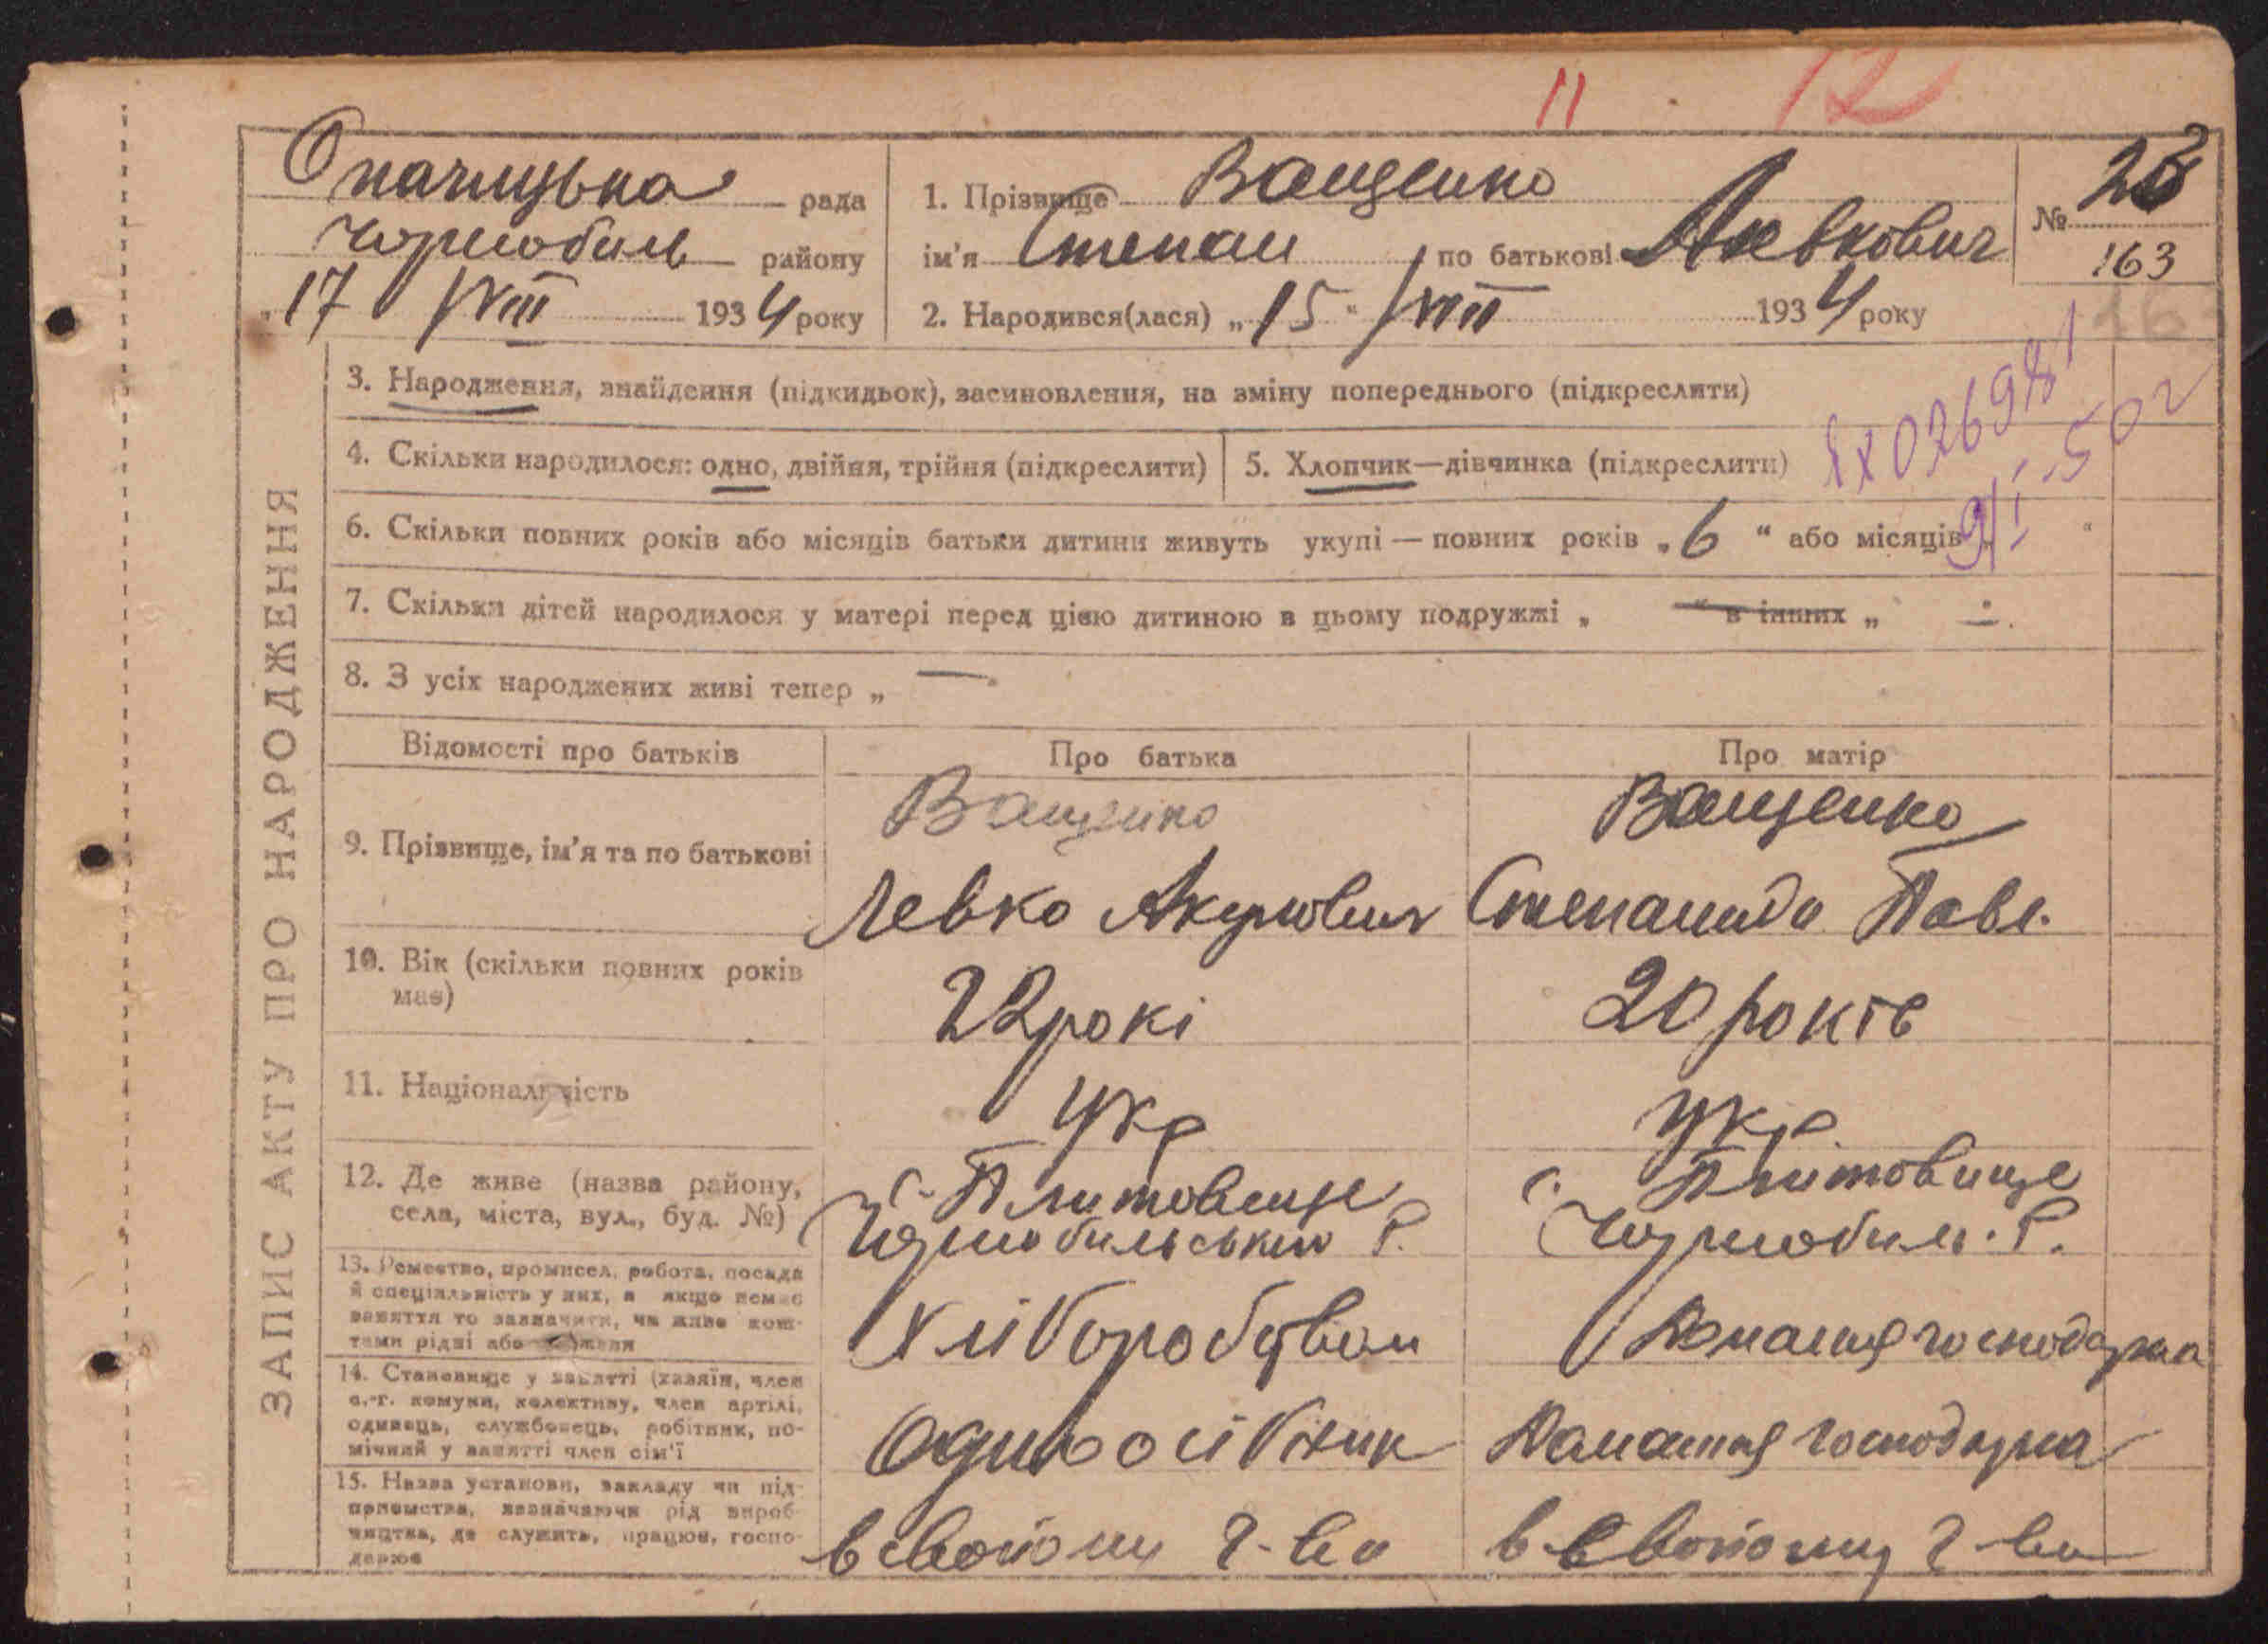 11 12
Опачицька рада
Чорнобиль району
"17 VIII 1934 року
1. Прізвище Ващенко
ім'я Степан по батькові Левкович
2. Народився(лася) „15" VIII 1934 року
№
163
16
3. Народження, знайдення (підкидьок), засиновлення, на зміну попереднього (підкреслити)
4. Скільки народилося: одно, двійня, трійня (підкреслити)
5. Хлопчик—дівчинка (підкреслити)
6. Скільки повних років або місяців батьки дитини живуть укупі — повних років „6" або місяців „ "
9/I-50 г
7. Скільки дітей народилося у матері перед цією дитиною в цьому подружжі „ " в інших „ —.
8. З усіх народжених живі тепер „ —
ЗАПИС АКТУ ПРО НАРОДЖЕННЯ
Відомості про батьків
Про батька
Про матір
9. Прізвище, ім'я та по батькові
Ващенко
Левко Акумович
Ващенко
Степанида Павл.
10. Вік (скільки повних років
має)
22 рокі
20 років
11. Національність
Укр
Укр.
12. Де живе (назва району,
села, міста, вул., буд. №)
с. Плитовище
Чорнобильського Р.
с. Плитовище
Чорнобил. Р.
13. Ремество, промисел, робота, посада
й спеціяльність у них, а якщо немає
заняття то зазначити, чи живе кош-
тами рідні або держави
Хліборобством
Домашня господарка
14. Становище у занятті (хазяїн, член
с.-г. комуни, колективу, член артілі,
одинець, службовець, робітник, по-
мічний у занятті член сім'ї
Одноосібник
Домашня господарка
15. Назва установи, закладу чи під-
приємства, зазначаючи рід вироб-
ництва, де служить, працює, госпо-
дарює
в свойому г-ва
в свойому г-ва